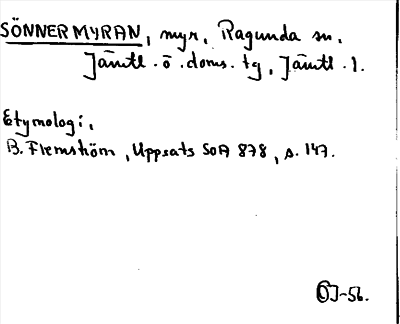 SÖNNERMYRAN, myr, Ragunda sn.
Jämtl. ö. doms. tg, Jämtl. l.
Etymologi,
B. Flemström, Uppsats SOA 878, s. 147.
OJ-56.